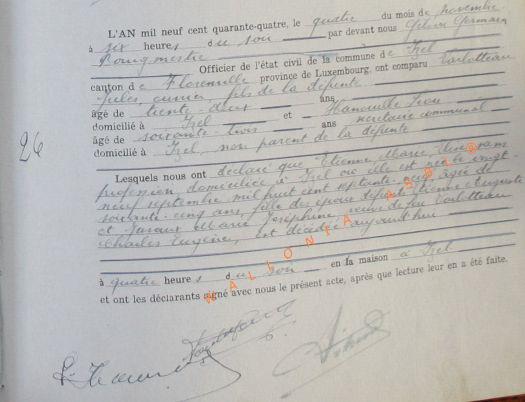 L'AN mil neuf cent quarante-quatre, le quatre du mois de novembre
à six heures du soir par devant nous Gilson Germain
Bourgmestre
Officier de l'état civil de la commune de Izel
canton de Florenville province de Luxembourg, ont comparu Varlotteau
Jules, ouvrier, fils de la défunte
âgé de trente-deux ans
domicilié à Izel et Hanouille Léon
âgé de soixante-trois ans secrétaire communal
domicilié à Izel, non parent de la défunte
26
Lesquels nous ont déclaré que Etienne, Marie, sans
profession, domiciliée à Izel où elle est née le vingt-
neuf septembre mil huit cent septante-neuf, âgée de
soixante-cinq ans, fille des époux défunts Etienne Auguste
et Marie Joséphine, veuve de feu Varlotteau
Charles Eugène, est décédée aujourd'hui
à quatre heures du soir en sa maison à Izel
et ont les déclarants signé avec nous le présent acte, après que lecture leur en a été faite.
WALLONIA ASBL